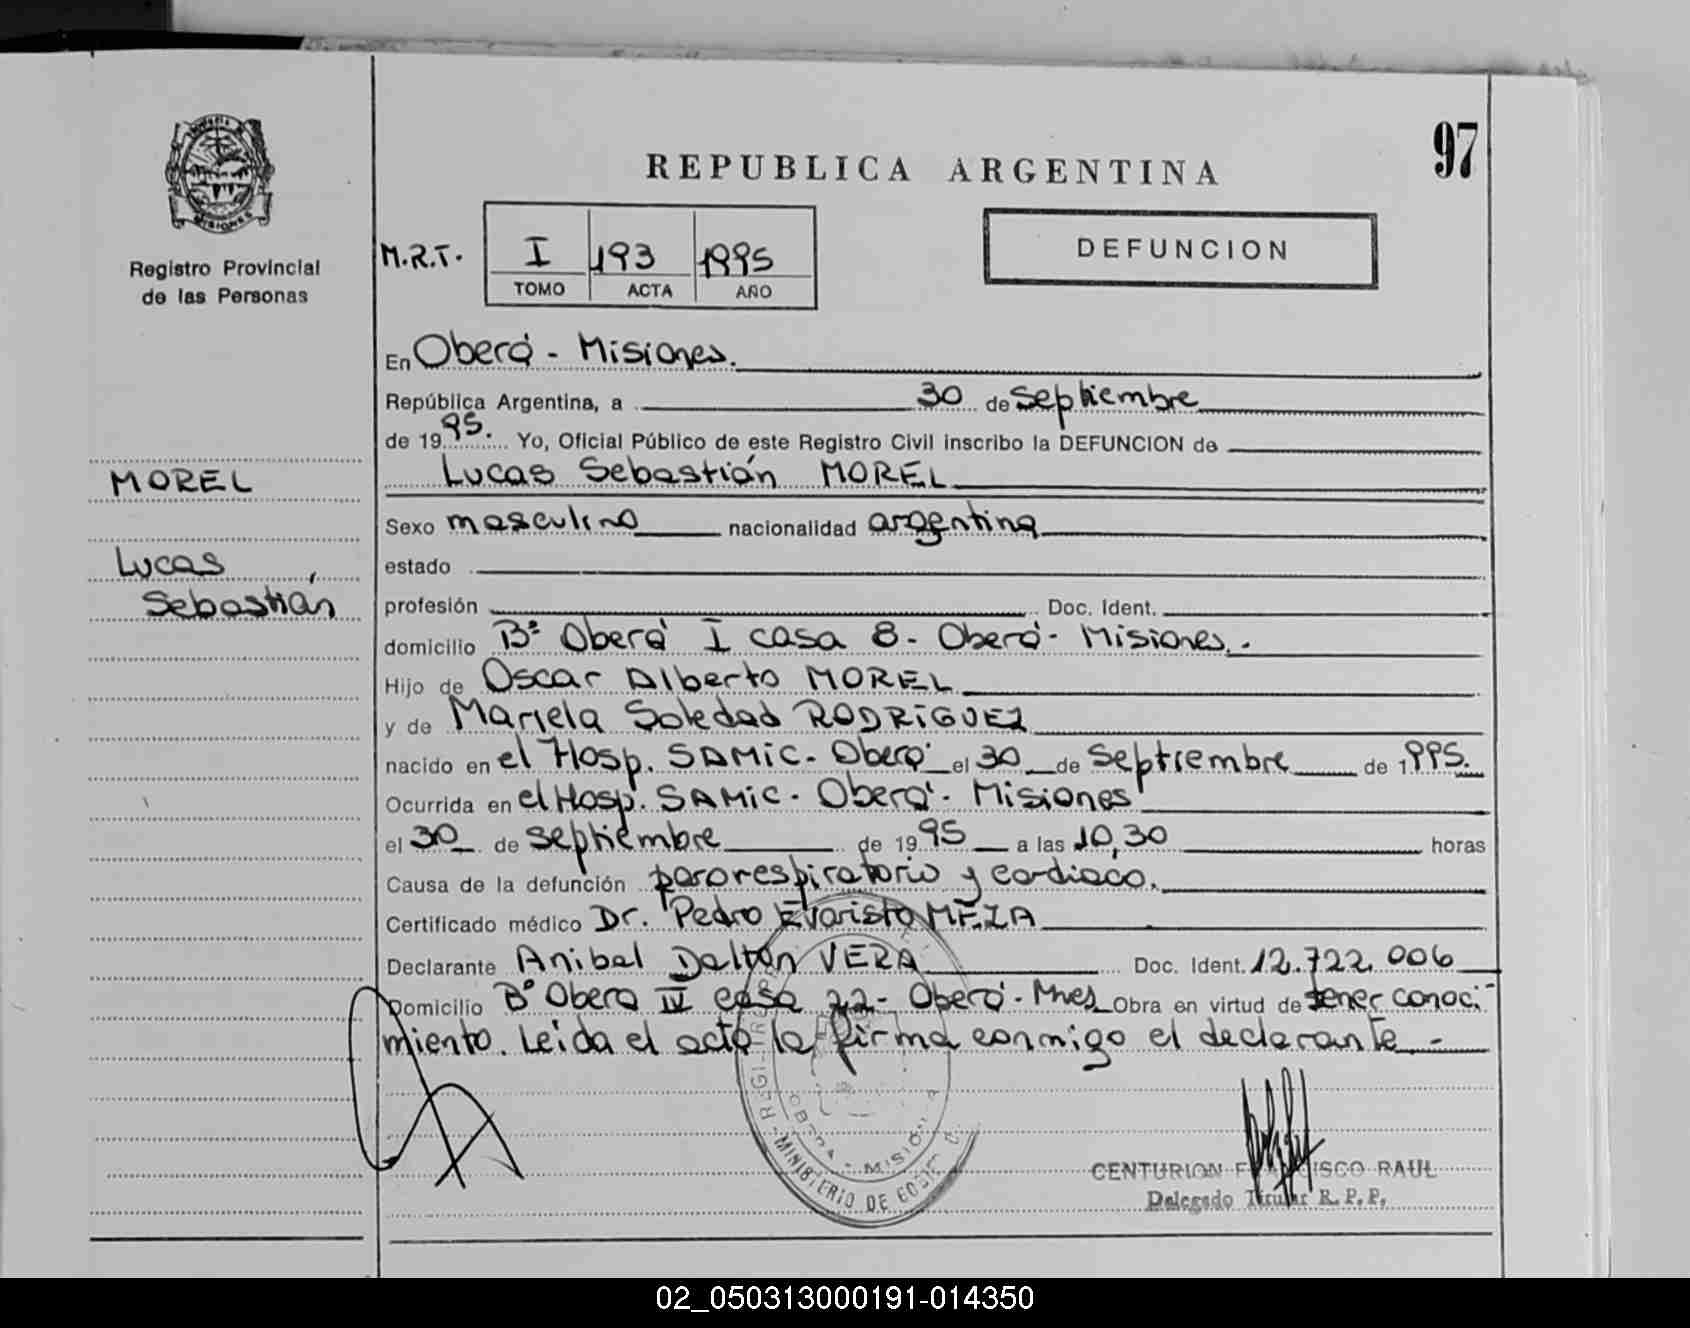 97
REPUBLICA ARGENTINA
MISIONES
Registro Provincial
de las Personas
M.R.T. I 193 1995
TOMO ACTA AÑO
DEFUNCION
En Oberá - Misiones.
República Argentina, a 30 de septiembre
de 1995. Yo, Oficial Público de este Registro Civil inscribo la DEFUNCION de
Lucas Sebastián MOREL
MOREL
Lucas
Sebastián
Sexo masculino nacionalidad argentina
estado
profesión Doc. Ident.
domicilio Bº Oberá I casa 8 - Oberá - Misiones.-
Hijo de Oscar Alberto MOREL
y de Mariela Soledad RODRIGUEZ
nacido en el Hosp. SAMIC - Oberá el 30 de Septiembre de 1995.
Ocurrida en el Hosp. SAMIC - Oberá - Misiones
el 30 de septiembre de 1995 a las 10,30 horas
Causa de la defunción pararespiratorio y cardiaco.
Certificado médico Dr. Pedro Evaristo MEZA
Declarante Anibal Dalton VERA Doc. Ident. 12.722.006
Domicilio Bº Obera IV casa 22 - Oberá - Mnes Obra en virtud de tener conoci-
miento. Leida el acta la firma conmigo el declarante.-
OBERA - MISIONES
MINISTERIO DE
CENTURION FRANCISCO RAUL
Delegado Titular R.P.P.
02_050313000191-014350